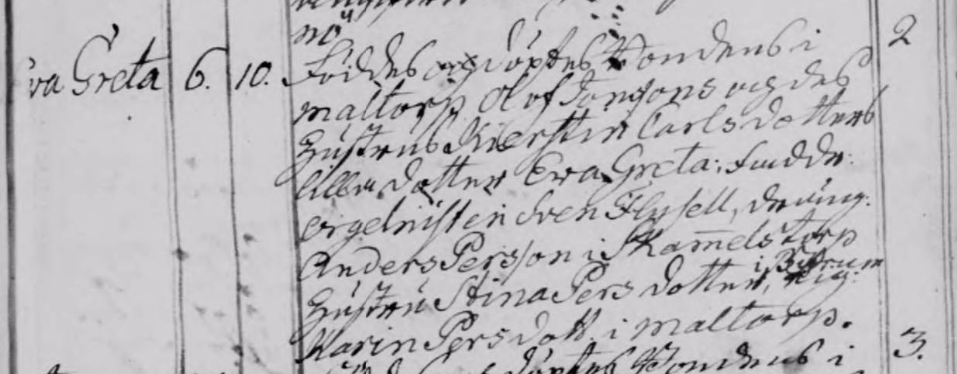 nö
Eva Greta 6. 10. Föddes och döptes Bondens i 2
maltorp Olof Jonsons och des
hustrus Kierstin Carlsdotters
lilla dotter Eva Greta. fadd:
orgelnisten Sven Flysell, dräng.
Anders Person i Skammelstorp
hustru Stina Persdotter, i
Karin Persdott. i maltorp. 3.
döptes Bondens i